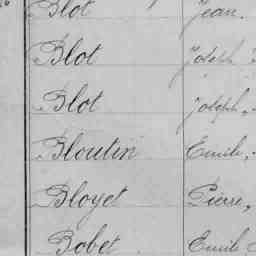 Blot Jean.
Blot Joseph
Blot Joseph,
Bloutin Emile,
Bloyet Pierre,
Bobet Emile